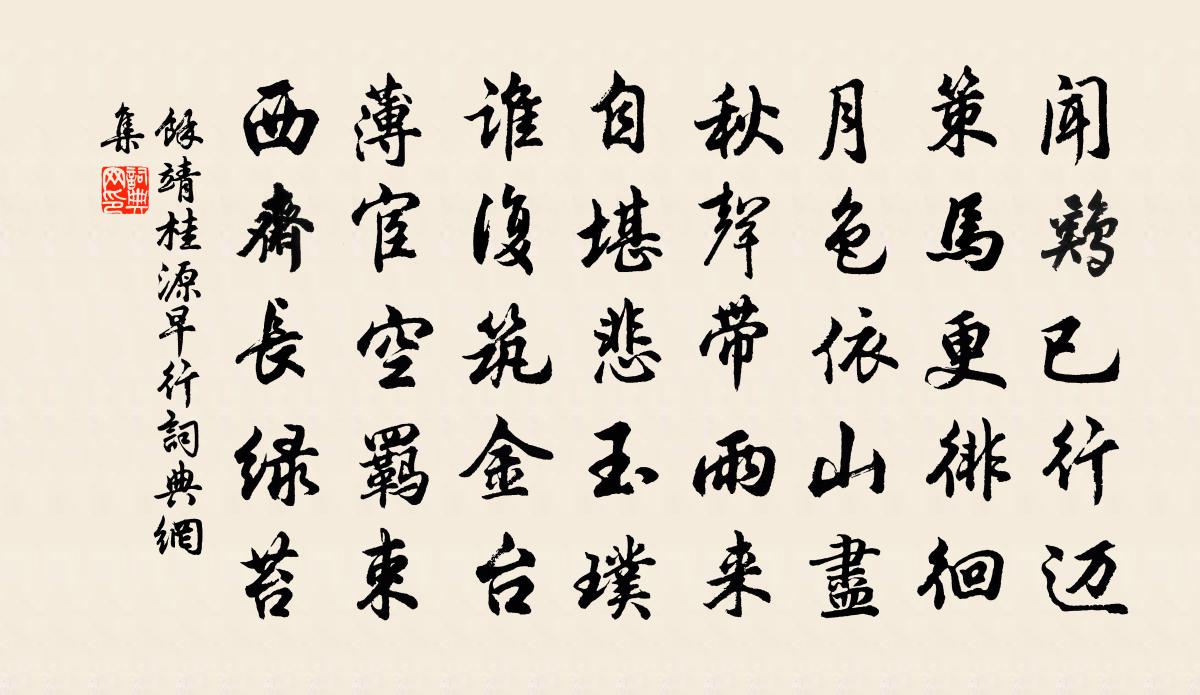 闻鷄已行迈
策馬更徘徊
月色依山盡
秋聲带雨来
自堪悲玉璞
谁復筑金台
薄宦空羁束
西齋長绿苔
餘靖桂源早行詞典網
集
詞典
网印